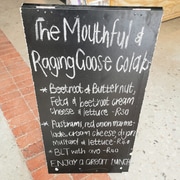 The Mouthful &
Raging Goose collab
* Beetroot & Butternut,
Feta & beetroot cream
cheese & lettuce - R100
* Pastrami, red onion marma-
lade, cream cheese, dijon
mustard & lettuce -
* BLT with avo - R100
ENJOY A GREAT LUNCH